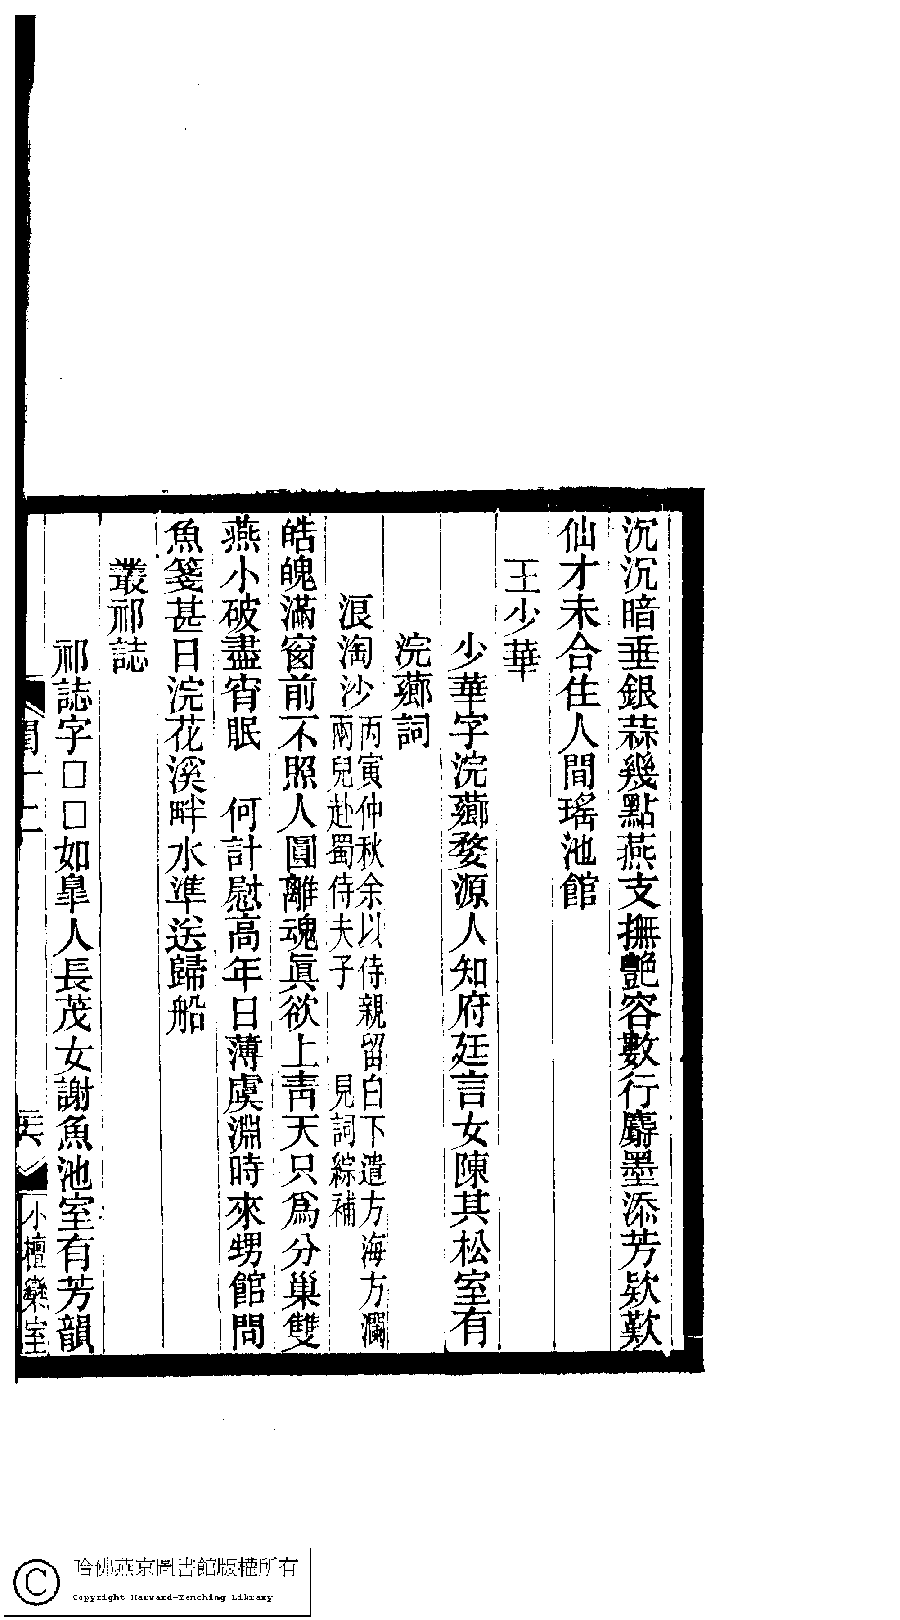 沉沉暗垂銀蒜幾點燕支撫艷容數行麝墨添芳欵歎
仙才未合住人間瑤池館
王少華
少華字浣薌婺源人知府廷言女陳其松室有
浣薌詞
浪淘沙 丙寅仲秋余以侍親留白下遣方海方瀾
兩兒赴蜀侍夫子 見詞綜補
皓魄滿窗前不照人圓離魂眞欲上靑天只爲分巢雙
燕小破盡宵眠 何計慰高年日薄虞淵時來甥館問
魚箋甚日浣花溪畔水準送歸船
叢祁誌
祁誌字□□如臯人長茂女謝魚池室有芳韻
閏十二
小檀欒室
哈佛燕京圖書館版權所有
Copyright Harvard-Yenching Library